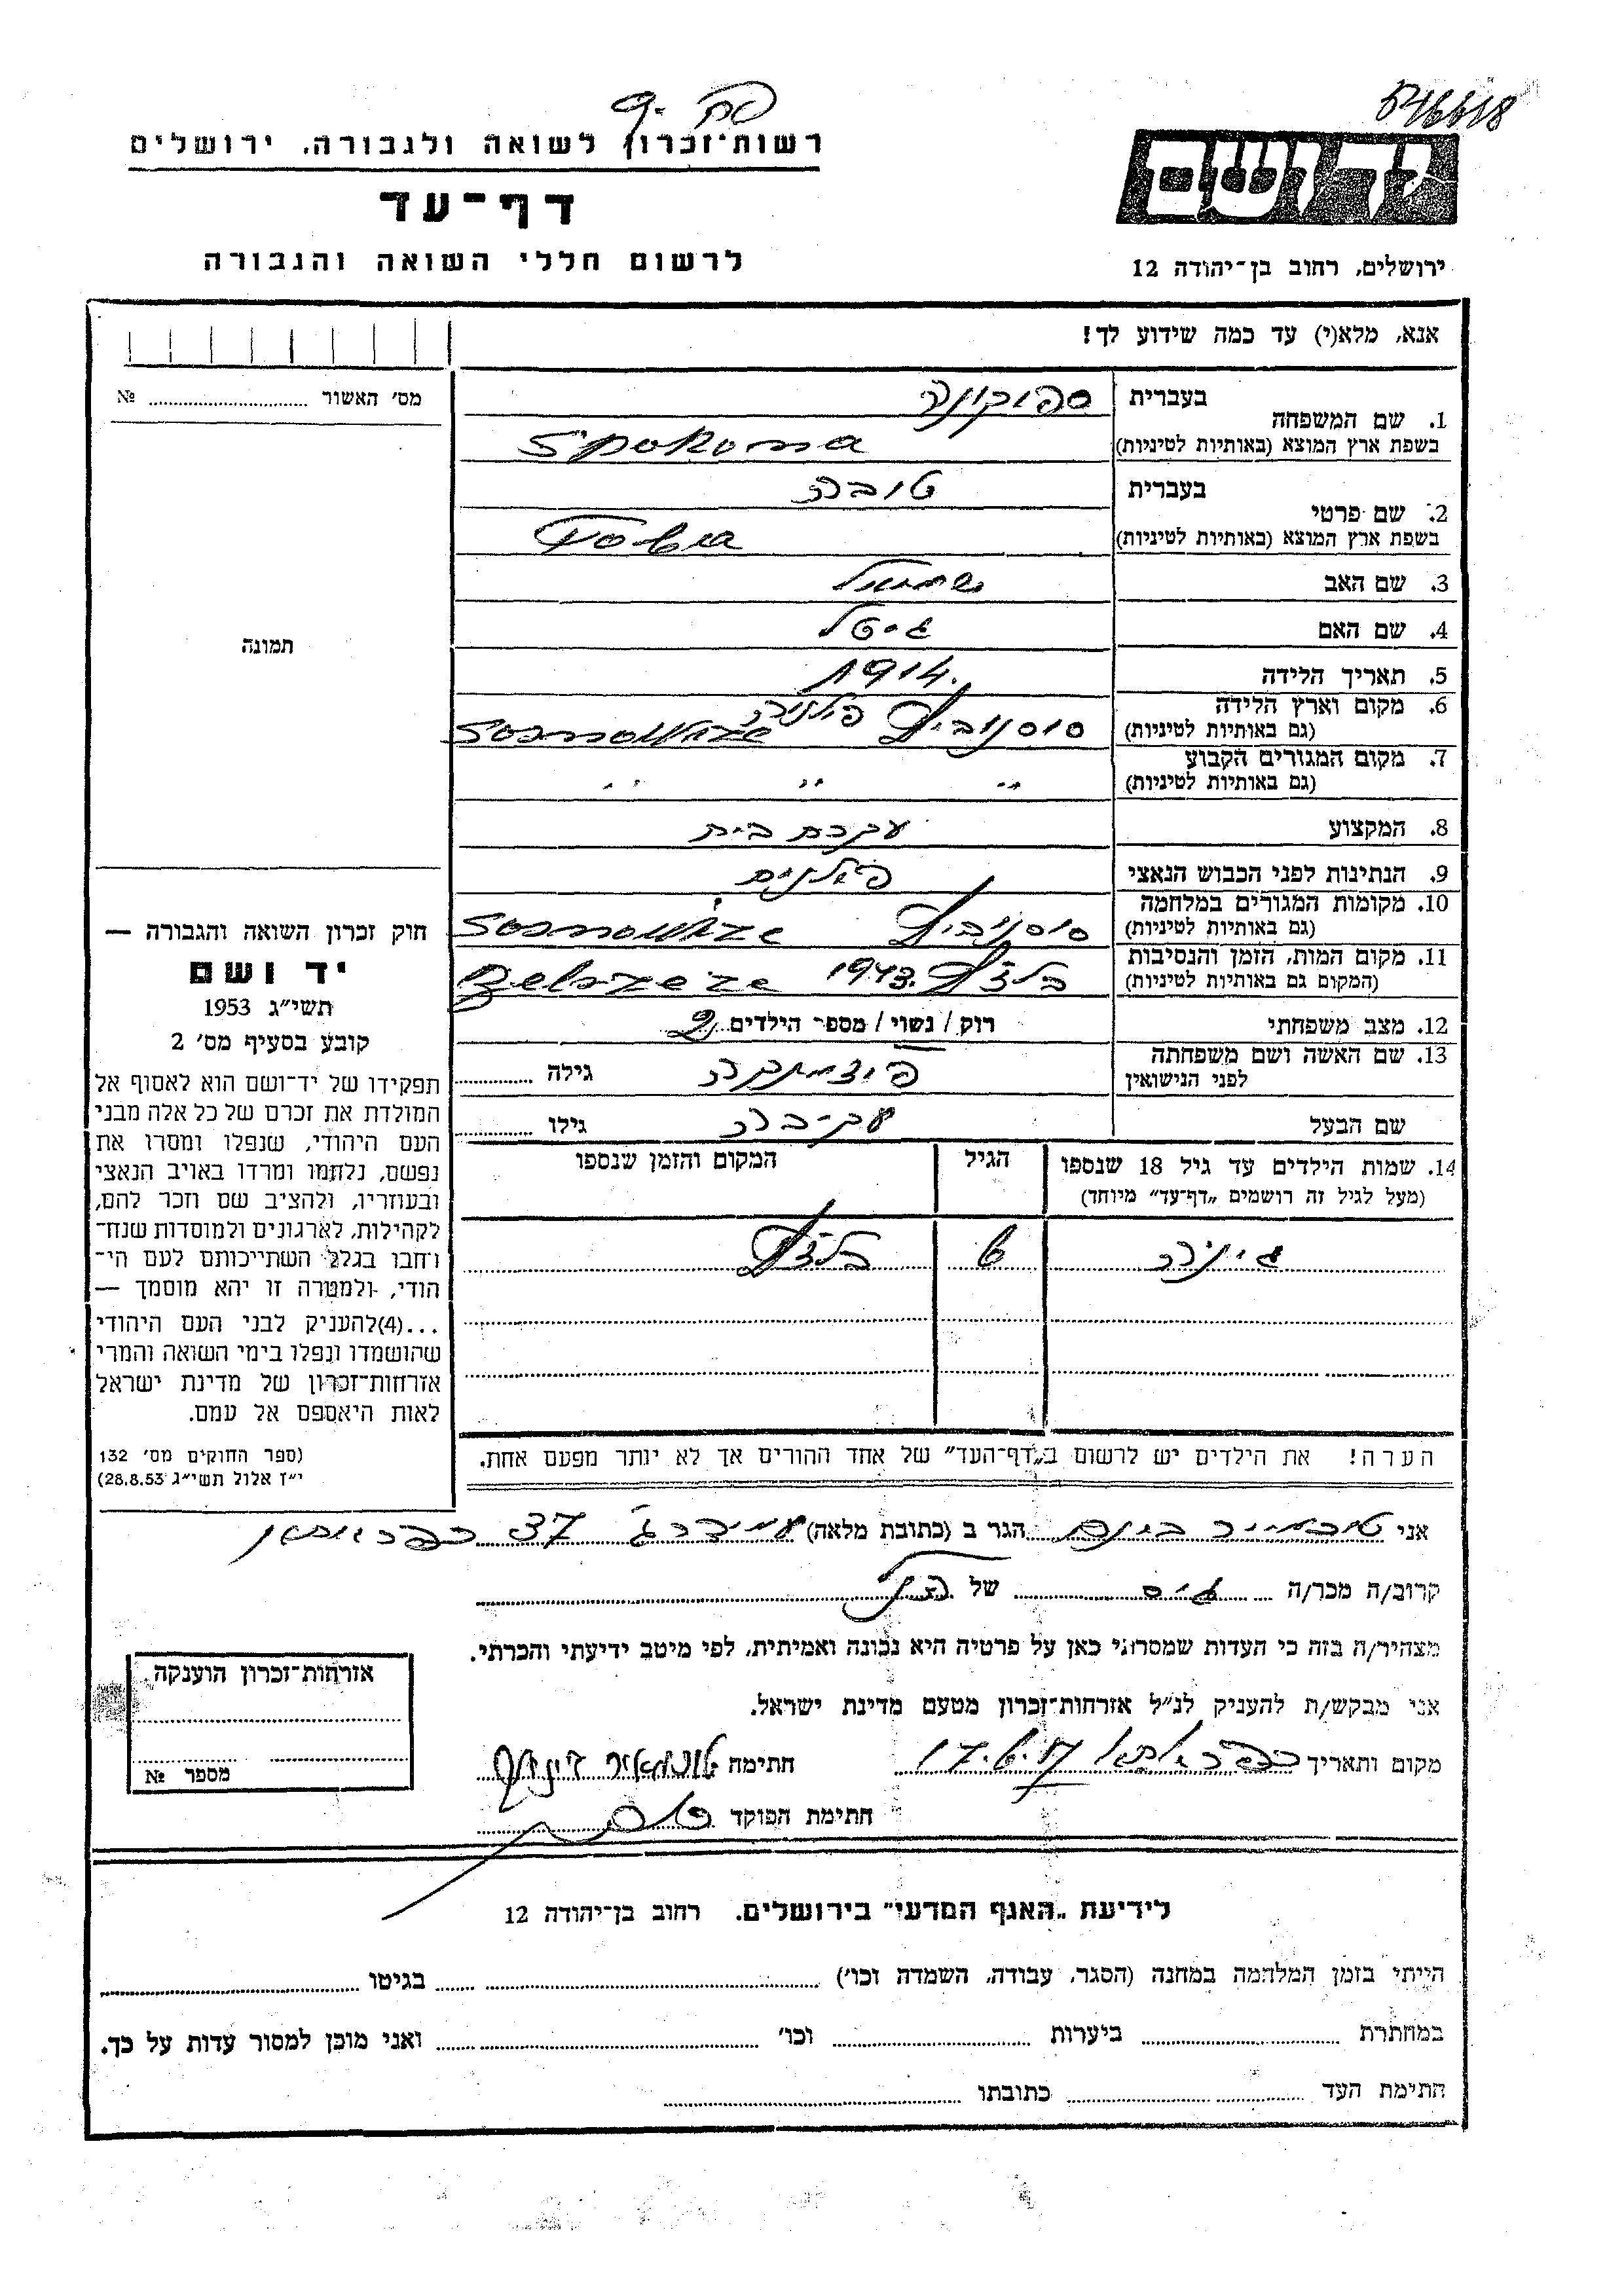 546618
רשות־זכרון לשואה ולגבורה, ירושלים
דף־עד
לרשום חללי השואה והגבורה
יד ושם
ירושלים, רחוב בן־יהודה 12
אנא, מלא(י) עד כמה שידוע לך!
מס׳ האשור № 
1. שם המשפחה בעברית ספוקונה
בשפת ארץ המוצא (באותיות לטיניות) Spokona
2. שם פרטי בעברית טובה
בשפת ארץ המוצא (באותיות לטיניות) Toba
3. שם האב שמואל
4. שם האם גיטל
5. תאריך הלידה 1914.
6. מקום וארץ הלידה (גם באותיות לטיניות) סוסנוביץ פולניה Sosnowize
7. מקום המגורים הקבוע (גם באותיות לטיניות) " " "
8. המקצוע עקרת בית
9. הנתינות לפני הכבוש הנאצי פולנים
10. מקומות המגורים במלחמה (גם באותיות לטיניות) סוסנוביץ Sosnowize
11. מקום המות, הזמן והנסיבות (המקום גם באותיות לטיניות) בלזץ 1943. Belzeze
12. מצב משפחתי רוק / נשוי / מספר הילדים 2
13. שם האשה ושם משפחתה לפני הנישואין גילה
שם הבעל עקיבה גילו
14. שמות הילדים עד גיל 18 שנספו הגיל המקום והזמן שנספו
(מעל לגיל זה רושמים „דף־עד״ מיוחד)
6 בלזץ
הערה! את הילדים יש לרשום ב„דף־העד״ של אחד ההורים אך לא יותר מפעם אחת.
תמונה
חוק זכרון השואה והגבורה —
יד ושם
תשי״ג 1953
קובע בסעיף מס׳ 2
תפקידו של יד־ושם הוא לאסוף אל
המולדת את זכרם של כל אלה מבני
העם היהודי, שנפלו ומסרו את
נפשם, נלחמו ומרדו באויב הנאצי
ובעוזריו, ולהציב שם וזכר להם,
לקהילות, לארגונים ולמוסדות שנח־
רחבו בגלל השתייכותם לעם הי־
הודי, ולמטרה זו יהא מוסמך —
...(4)להעניק לבני העם היהודי
שהושמדו ונפלו בימי השואה והמרי
אזרחות־זכרון של מדינת ישראל
לאות היאספם אל עמם.
(ספר החוקים מס׳ 132
י״ז אלול תשי״ג 28.8.53)
אני הגר ב (כתובת מלאה) 37 כפר אתא
קרוב/ה מכר/ה גיס של
מצהיר/ה בזה כי העדות שמסרתי כאן על פרטיה היא נכונה ואמיתית, לפי מיטב ידיעתי והכרתי.
אני מבקש/ת להעניק לנ״ל אזרחות־זכרון מטעם מדינת ישראל.
מקום ותאריך כפר אתא 17.6.57 חתימה
חתימת הפוקד
אזרחות־זכרון הוענקה
מספר №
לידיעת „האגף המדעי״ בירושלים. רחוב בן־יהודה 12
הייתי בזמן המלחמה במחנה (הסגר, עבודה, השמדה וכו׳) בגיטו
במחתרת ביערות וכו׳ ואני מוכן למסור עדות על כך.
חתימת העד כתובתו